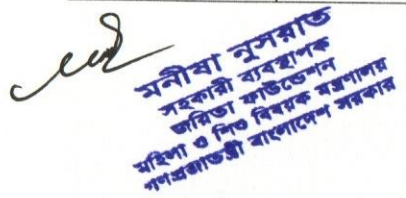 মনীষা নুসরাত
সহকারী ব্যবস্থাপক
জয়িতা ফাউন্ডেশন
মহিলা ও শিশু বিষয়ক মন্ত্রণালয়
গণপ্রজাতন্ত্রী বাংলাদেশ সরকার